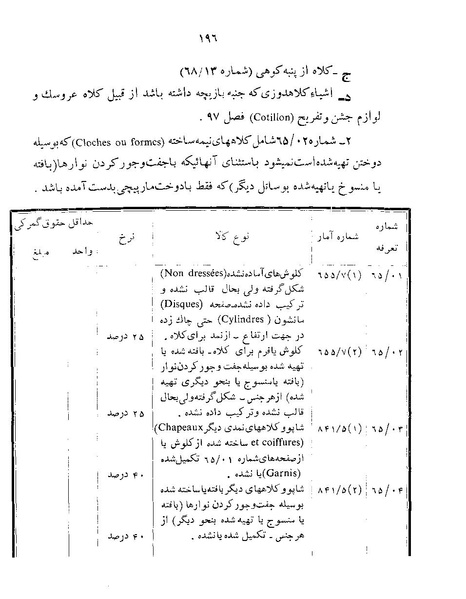 ۱۹۶
ج - کلاه از پنبه کوهی (شماره ۶۸/۱۳)
د - اشیاء کلاهدوزی که جنبه بازیچه داشته باشد از قبیل کلاه عروسک و
لوازم جشن و تفریح (Cotillon) فصل ۹۷ .
۲- شماره ۶۵/۰۲ شامل کلاههای نیمه ساخته (Cloches ou formes) که بوسیله
دوختن تهیه شده است نمیشود باستثنای آنهائیکه با جفت و جور کردن نوارها (بافته
یا منسوج یا تهیه شده بوسائل دیگر) که فقط با دوخت مارپیچی بدست آمده باشد .
شماره تعرفه
شماره آمار
نوع کالا
نرخ
حداقل حقوق گمرکی
واحد
مبلغ
۶۵/۰۱
۶۵۵/۷(۱)
کلوش‌های آماده نشده (Non dressées)
شکل گرفته ولی بحال قالب نشده و
ترکیب داده نشده صفحه (Disques)
مانشون (Cylindres) حتی چاک زده
در جهت ارتفاع - از نمد برای کلاه .
۲۵ درصد
۶۵/۰۲
۶۵۵/۷(۲)
کلوش یا فرم برای کلاه - بافته شده یا
تهیه شده بوسیله جفت و جور کردن نوار
(بافته یا منسوج یا بنحو دیگری تهیه
شده) از هر جنس - شکل گرفته ولی بحال
قالب نشده و ترکیب داده نشده .
۲۵ درصد
۶۵/۰۳
۸۴۱/۵(۱)
شاپو و کلاههای نمدی دیگر (Chapeaux
et coiffures) ساخته شده از کلوش یا
از صفحه‌های شماره ۶۵/۰۱ تکمیل شده
(Garnis) یا نشده .
۴۰ درصد
۶۵/۰۴
۸۴۱/۵(۲)
شاپو و کلاههای دیگر بافته یا ساخته شده
بوسیله جفت و جور کردن نوارها (بافته
یا منسوج یا تهیه شده بنحو دیگر) از
هر جنس - تکمیل شده یا نشده .
۴۰ درصد